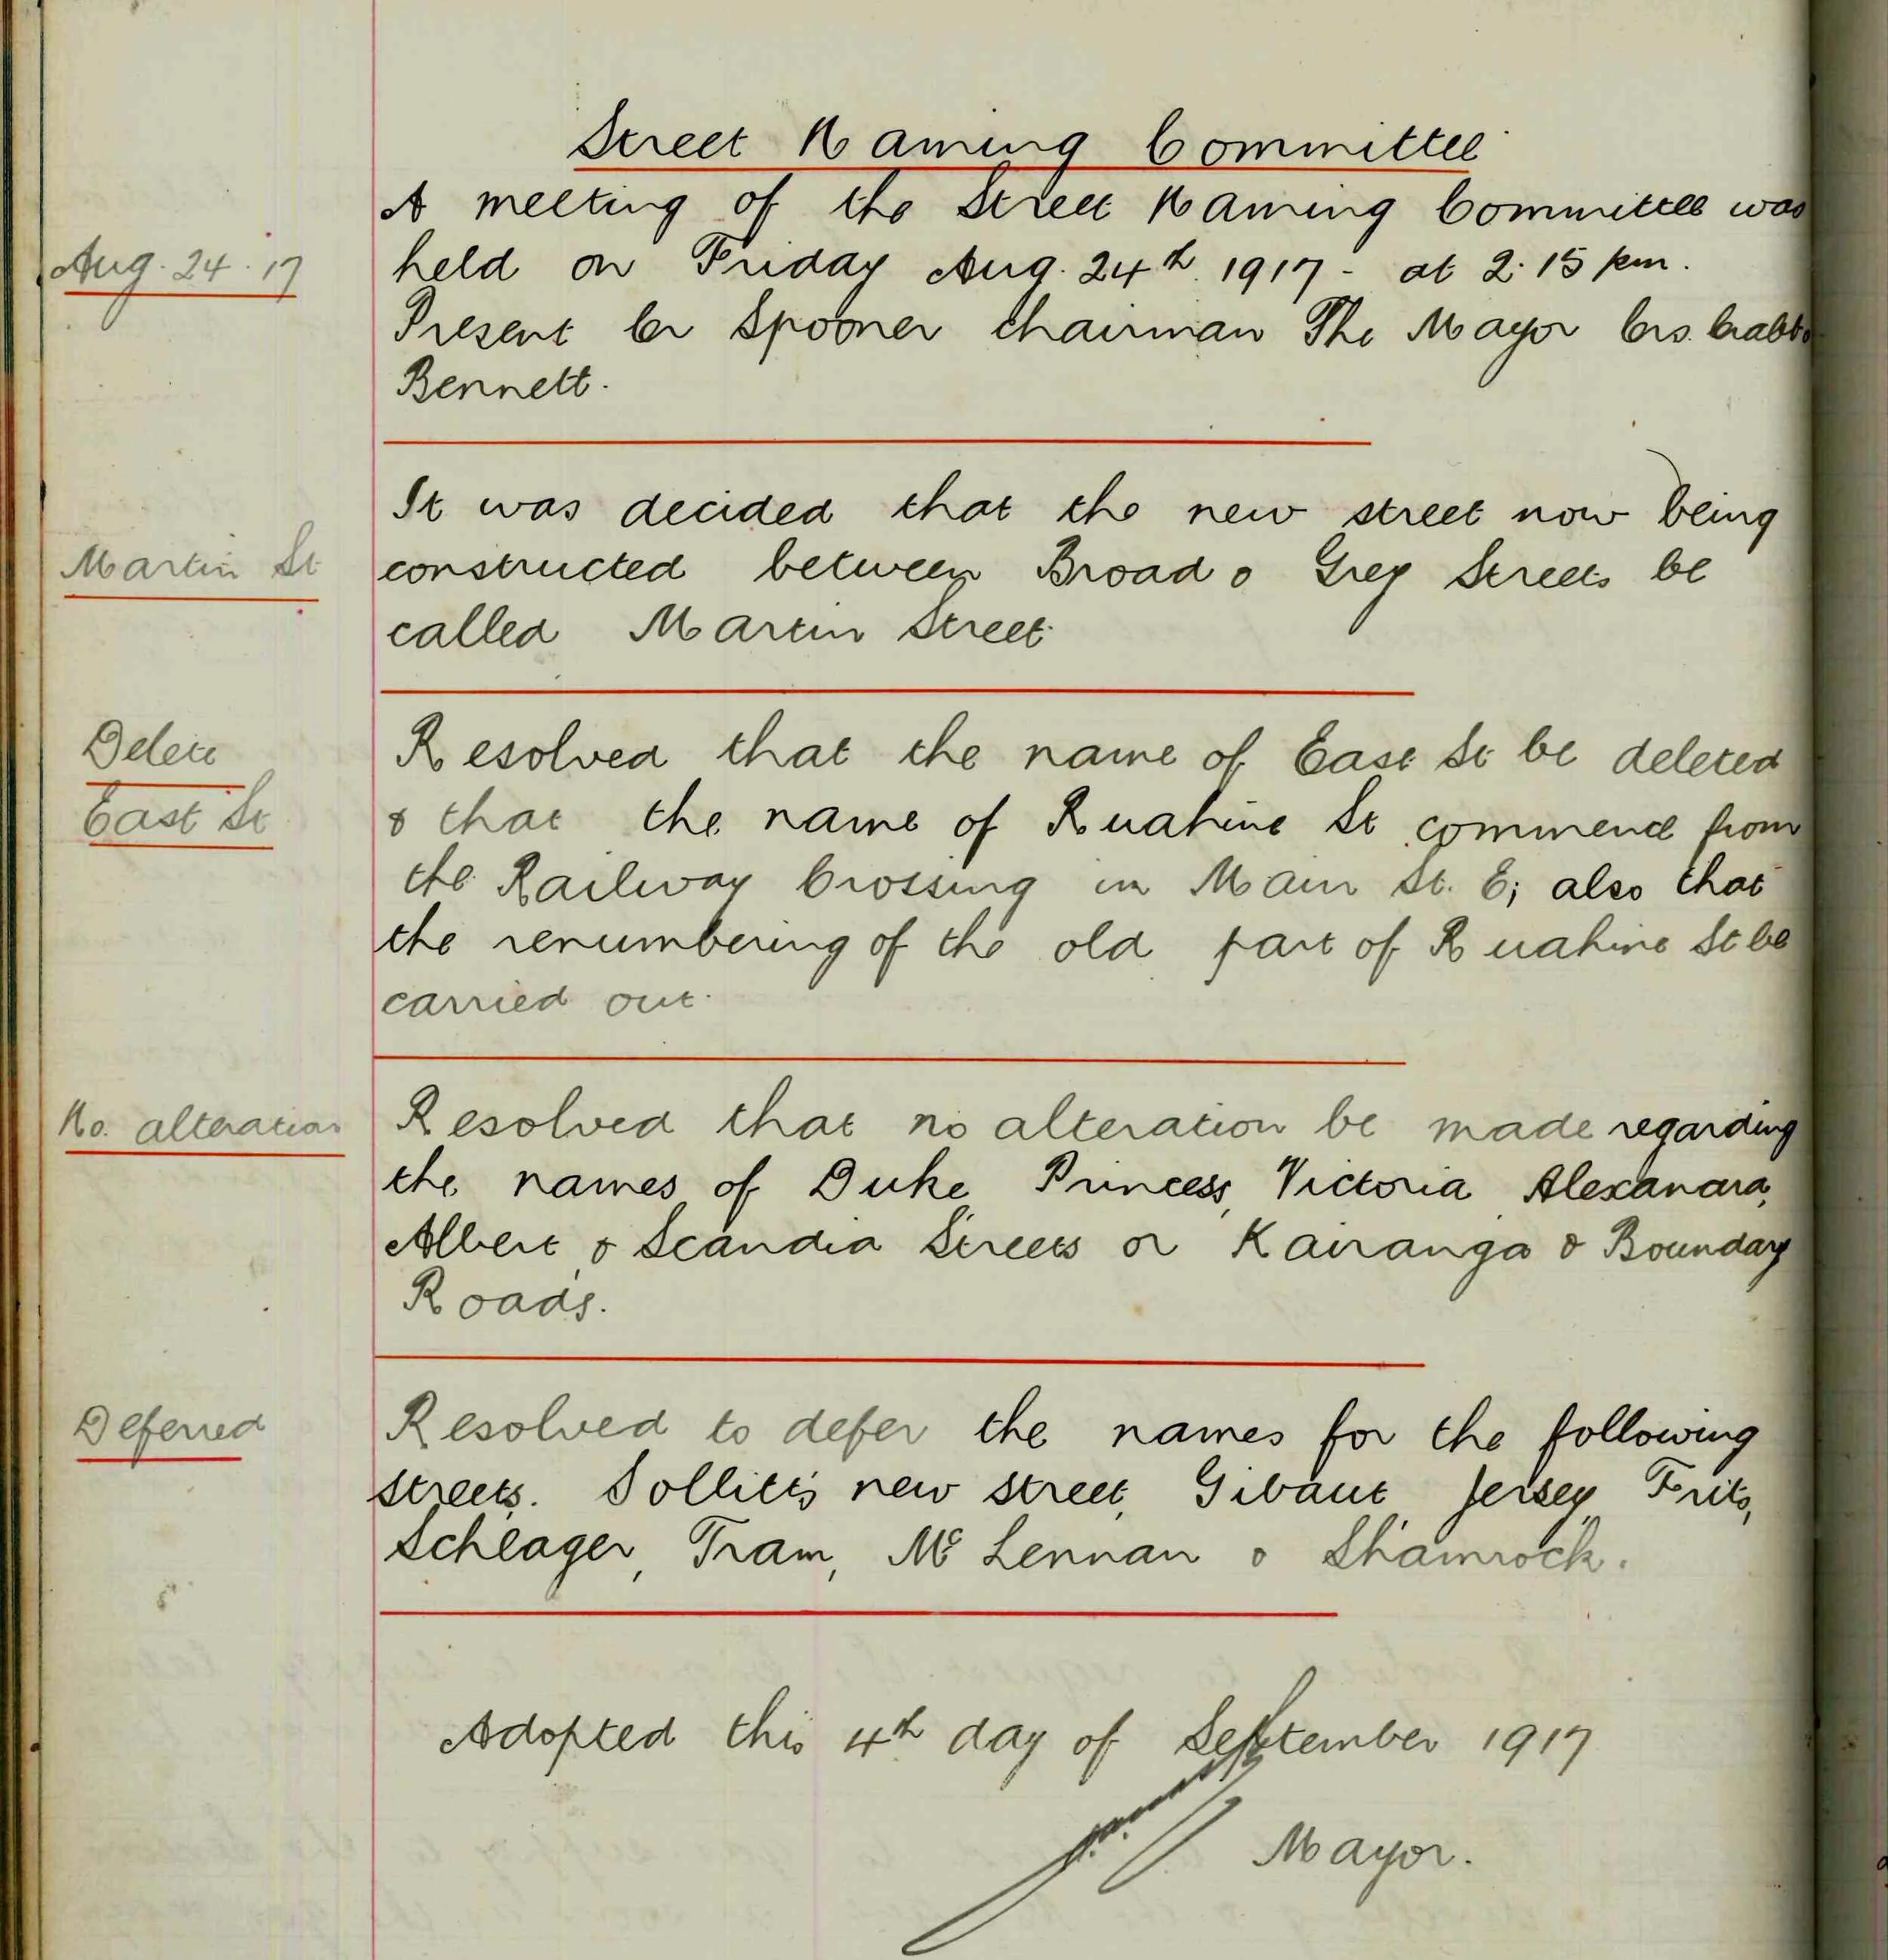 Street Naming Committee
A meeting of the Street Naming Committee was
Aug. 24. 17
held on Friday Aug. 24th. 1917 - at 2.15 pm.
Present Cr Spooner Chairman The Mayor Crs.
Bennett.
It was decided that the new street now being
Martin St
constructed between Broad & Grey Streets be
called Martin Street.
Delete
Resolved that the name of East St be deleted
East St
& that the name of Ruahine St commence from
the Railway Crossing in Main St. E; also that
the renumbering of the old part of Ruahine St be
carried out.
No. alteration
Resolved that no alteration be made regarding
the names of Duke, Princess, Victoria, Alexandra,
Albert, & Scandia Streets or Kairanga & Boundary
Roads.
Deferred
Resolved to defer the names for the following
streets. Sollitt's new street, Gibaut, Jersey, Frits,
Schlager, Tram, McLennan & Shamrock.
Adopted this 4th day of September 1917
Mayor.